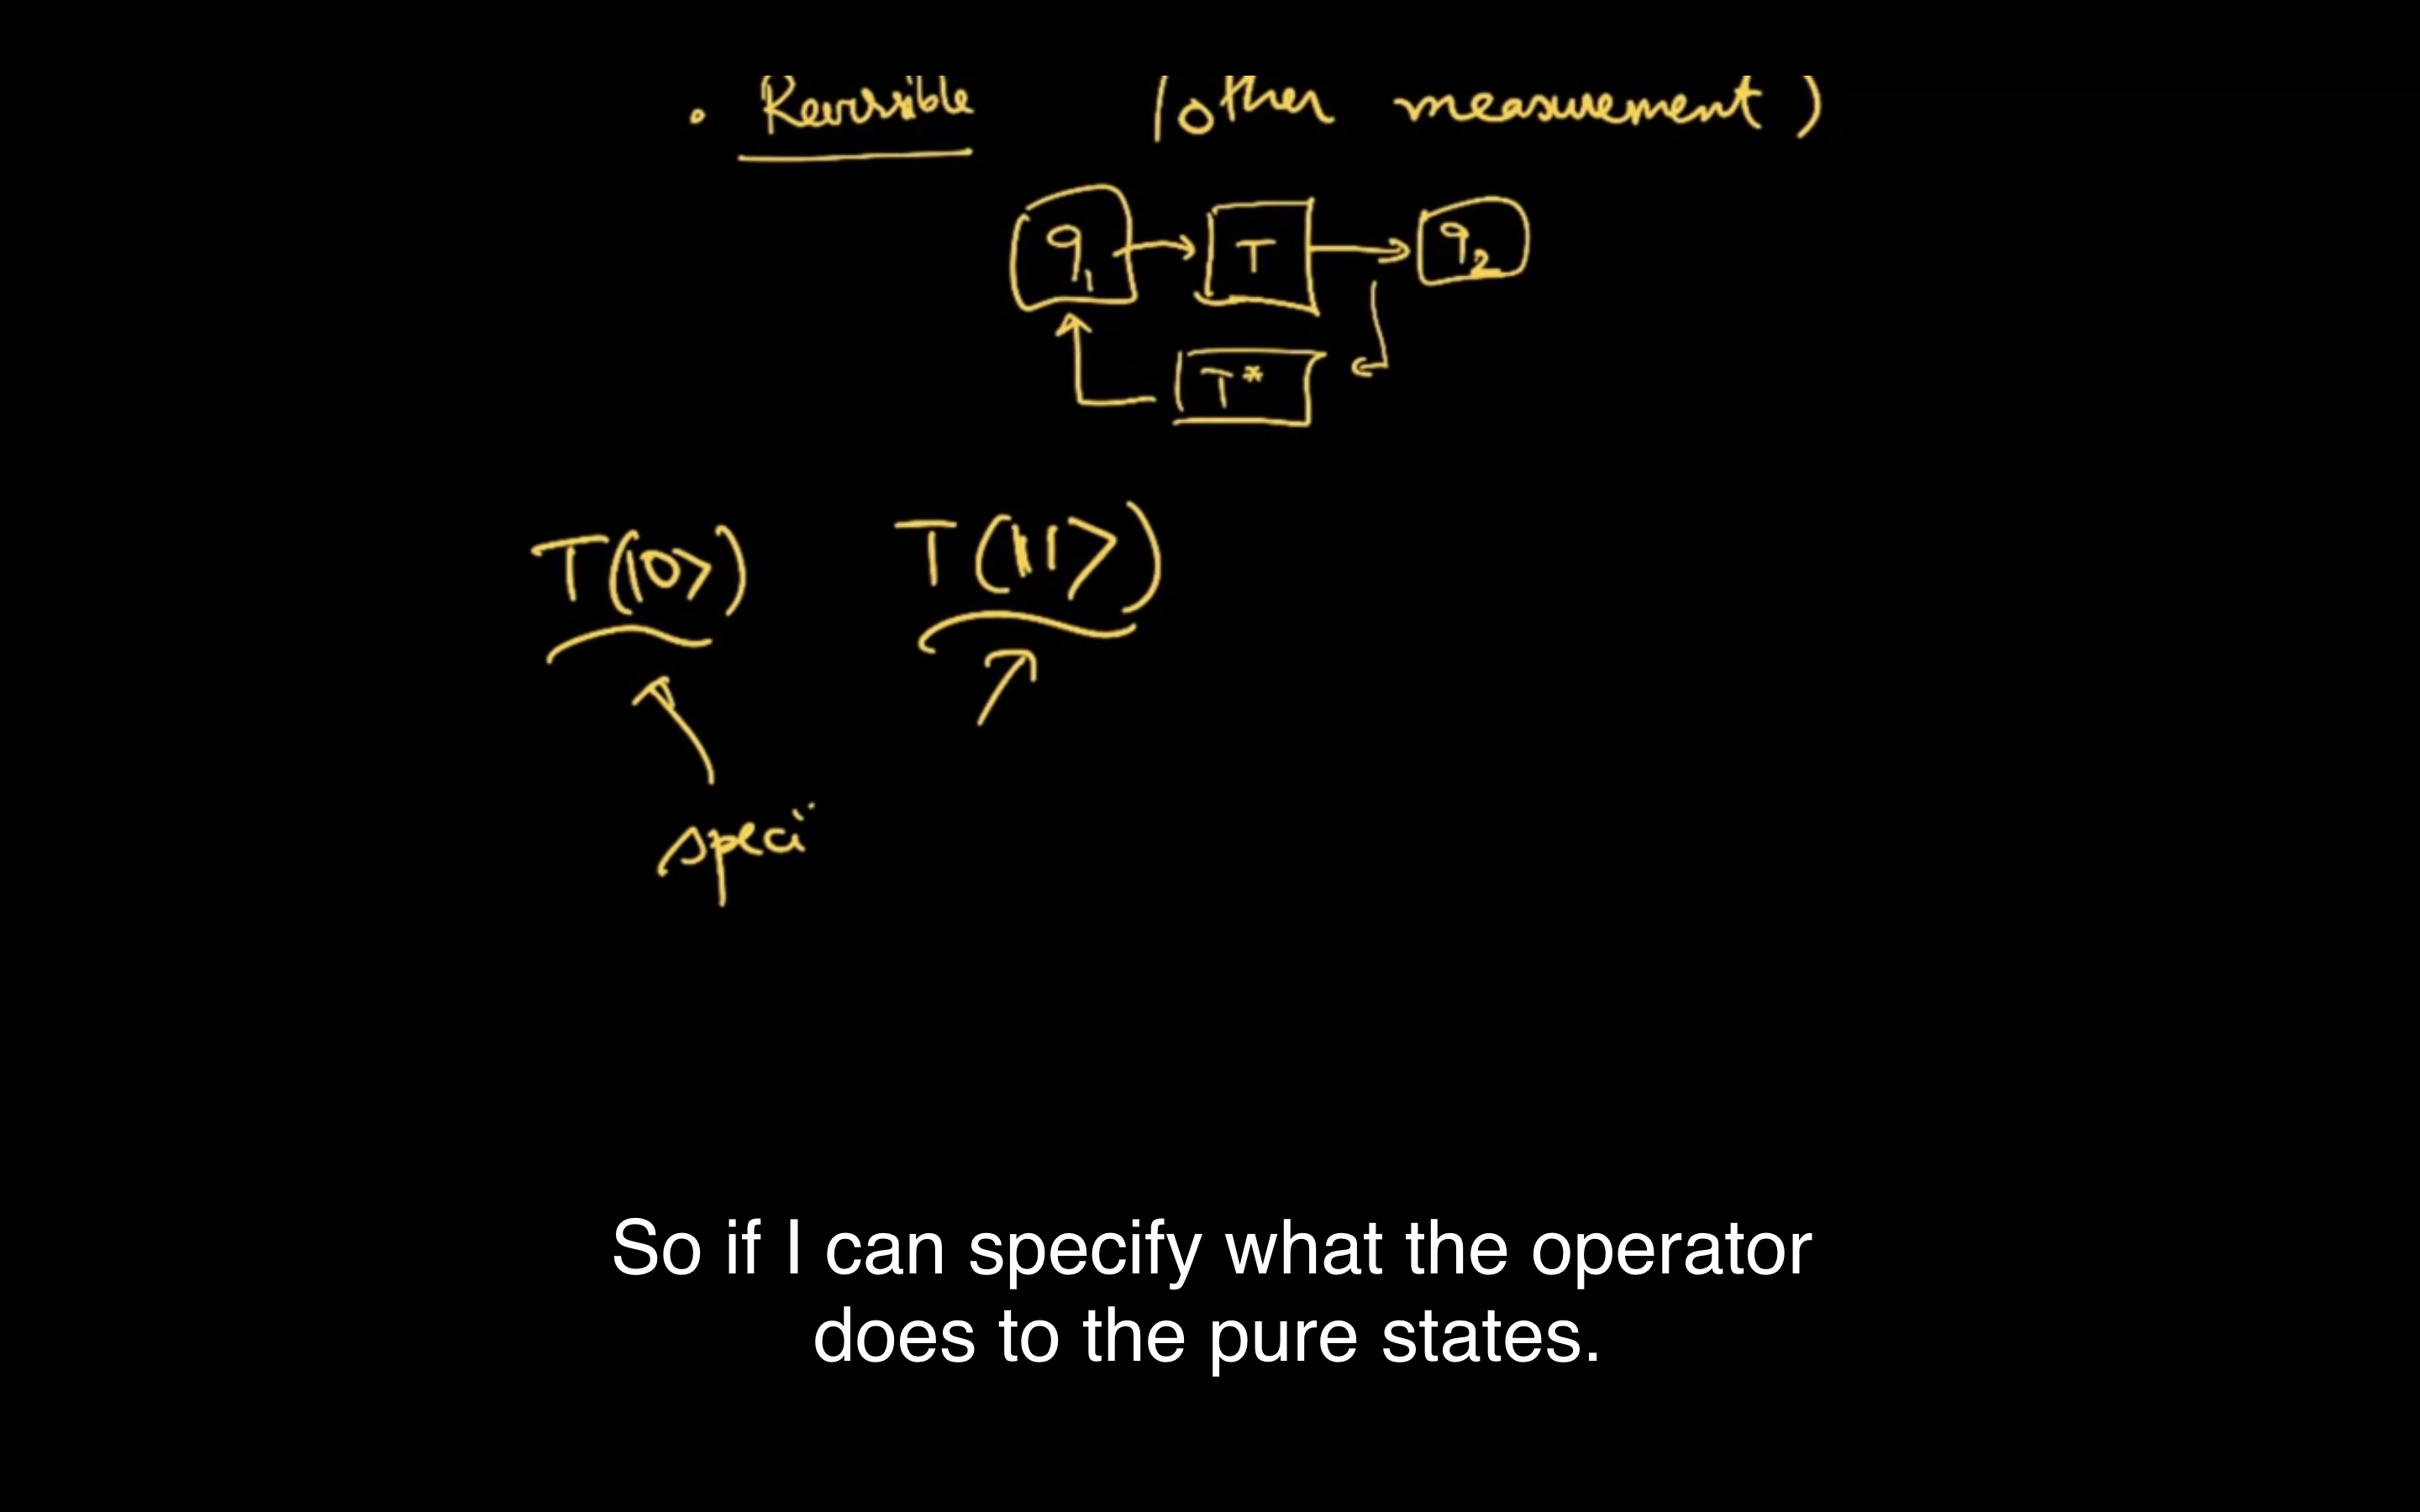 • Reversible (other measurement)
q1 T q2
T*
T(|0>) T(|1>)
speci
So if I can specify what the operator
does to the pure states.